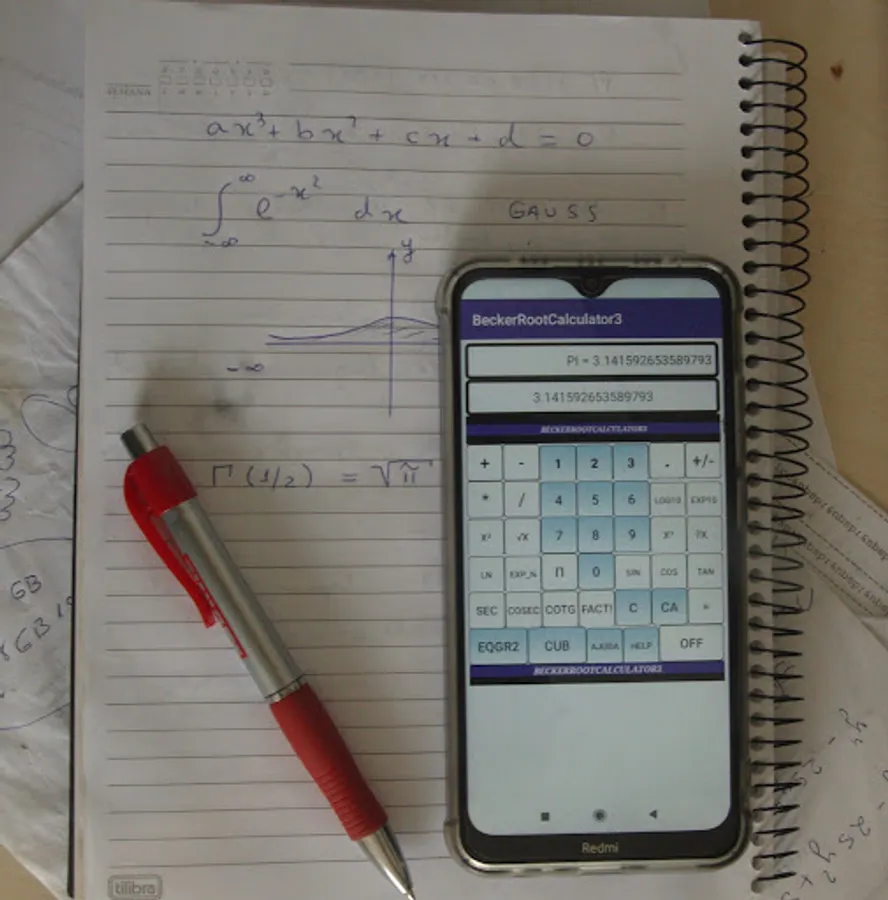 SEMANA
ax³ + bx² + cx + d = 0
∫ e^-x² dx GAUSS
∞
-∞
y
-∞
Γ(1/2) = √π
BeckerRootCalculator3
PI = 3.141592653589793
3.141592653589793
BECKERROOTCALCULATOR3
+ - 1 2 3 . +/-
* / 4 5 6 LOG10 EXP10
X² √X 7 8 9
LN EXP_N Π 0 SIN COS TAN
SEC COSEC COTG FACT! C CA =
EQGR2 CUB AJUDA HELP OFF
BECKERROOTCALCULATOR3
Redmi
tilibra
GB
GB